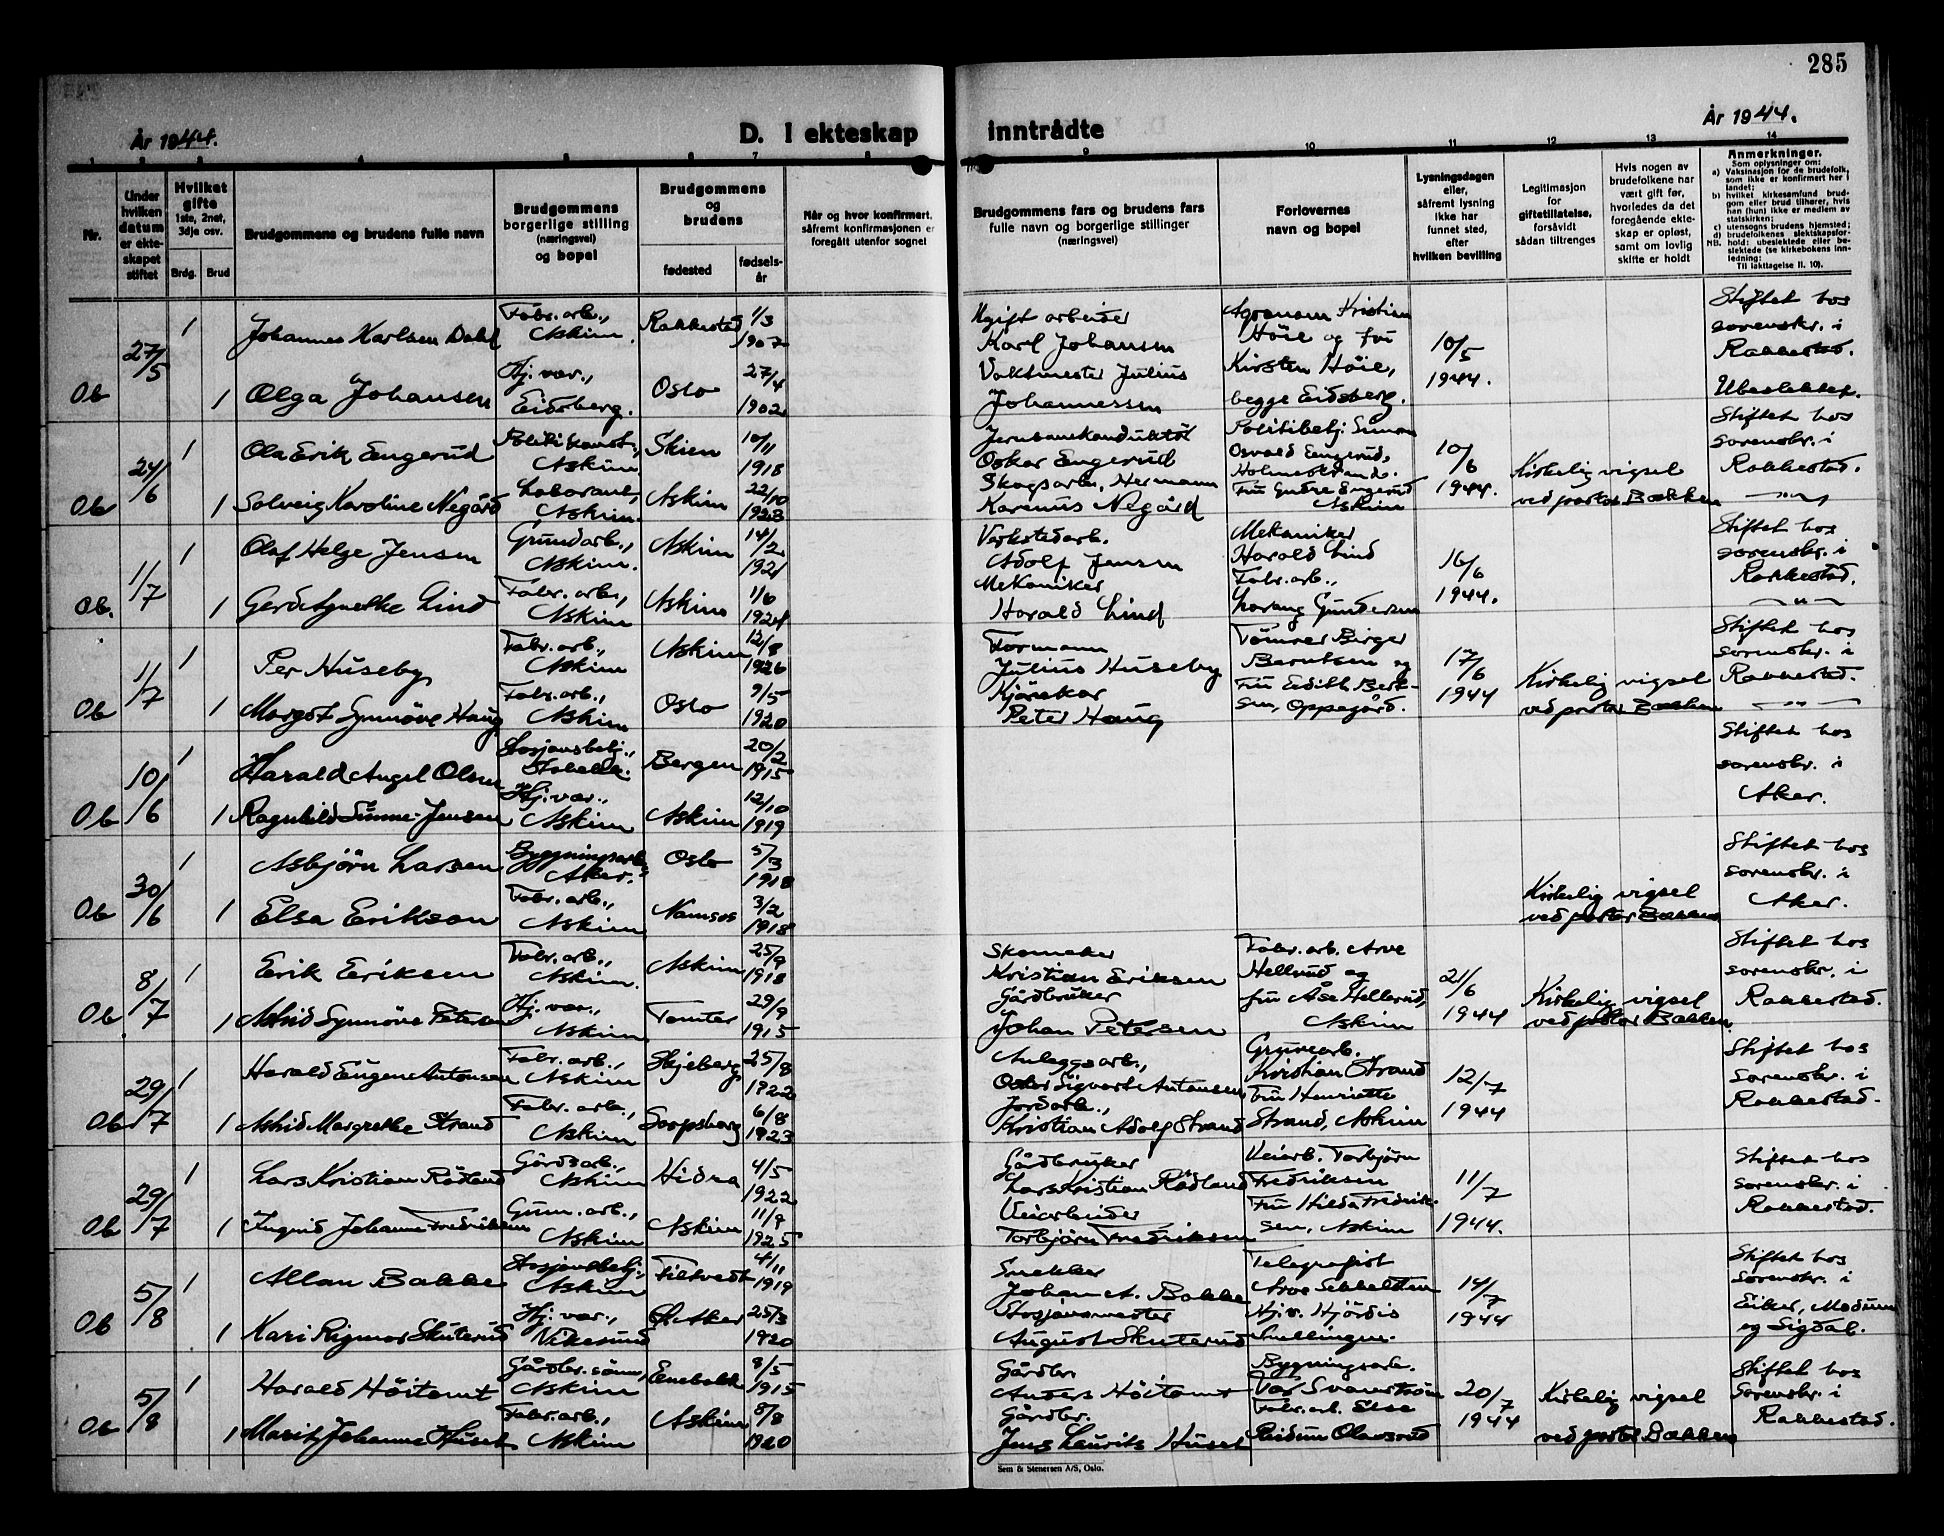 285
År 1944.
D. I ekteskap inntrådte
År 1944.
1 2 3 4 5 6 7 8 9 10 11 12 13 14
Nr.
Under hvilken datum er ekteskapet stiftet
Hvilket gifte 1ste, 2net, 3dje osv.
Brdg. Brud
Brudgommens og brudens fulle navn
Brudgommens borgerlige stilling (næringsvei) og bopel
Brudgommens og brudens
fødested
fødselsår
Når og hvor konfirmert, såfremt konfirmasjonen er foregått utenfor sognet
Brudgommens fars og brudens fars fulle navn og borgerlige stillinger (næringsvei)
Forlovernes navn og bopel
Lysningsdagen eller, såfremt lysning ikke har funnet sted, efter hvilken bevilling
Legitimasjon for giftetillatelse, forsåvidt sådan tiltrenges
Hvis nogen av brudefolkene har vært gift før, hvorledes da det foregående ekteskap er opløst, samt om lovlig skifte er holdt
Anmerkninger.
Som oplysninger om:
a) Vaksinasjon for de brudefolk, som ikke er konfirmert her i landet;
b) hvilket kirkesamfund brudgommen eller brud tilhører, hvis han (hun) ikke er medlem av statskirken;
c) utensogns brudens hjemsted;
d) brudefolkenes slektskapsforhold: ubeslektede eller beslektede (se kirkebokens innledning:
NB.
Til iakttagelse II. 10).
Ob 27/5 1 Johannes Karlsen Dahl Fabr. arb., Askim. Rakkestad 1/3 1907
1 Olga Johansen Hj. vær., Eidsberg. Oslo 27/4 1902
Ugift arbeider Karl Johansen
Vaktmester Julius Johannessen
Agronom Kristian Höie og fru Kirsten Höie, begge Eidsberg.
10/5 1944.
Stiftet hos sorenskr. i Rakkestad. Ubeslektet.
Ob 24/6 1 Ola Erik Engerud Politikonst., Askim Skien 10/11 1918
1 Solveig Karoline Negård Laborant, Askim. Askim 22/10 1923
Oskar Engerud
Skogsarb. Hermann Karenus Negård
Politibetj. Simon Osvald Engerud, Holmestrand.
Engerud Askim
10/6 1944.
Kirkelig vigsel ved pastor Bakken
Stiftet hos sorenskr. i Rakkestad. — „ —
Ob. 1/7 1 Olaf Helge Jensen Grundarb., Askim. Askim 14/2 1921
1 Gerd Agnethe Lind Fabr. arb., Askim Askim 1/6 1924
Verkstedarb. Adolf Jensen
Mekaniker Harald Lind
Mekaniker Harald Lind
Fabr. arb., Gundersen
16/6 1944.
Stiftet hos sorenskr. i Rakkestad. — „ —
Ob 1/7 1 Per Huseby Fabr. arb., Askim Askim 12/8 1926
1 Margot Synnöve Haug Fabr. arb., Askim Oslo 9/5 1920
Formann Julius Huseby
Peter Haug
Tömrer Birger Berntsen og Fru Edith Berntsen, Oppegård.
17/6 1944
Kirkelig vigsel ved pastor Bakken
Stiftet hos sorenskr. i Rakkestad. — „ —
Ob 10/6 1 Harald Angel Olsen Stasjonsbetj., Bergen 20/2 1915
1 Ragnhild Sunne-Jensen Hj. vær., Askim Askim 12/10 1919
Stiftet hos sorenskr. i Aker.
Ob 30/6 1 Asbjörn Larsen Bygningsarb., Aker. Oslo 5/3 1918
1 Elsa Erikson Fabr. arb., Askim Namsos 3/2 1918
Kirkelig vigsel ved pastor Bakken
Stiftet hos sorenskr. i Aker.
Ob 8/7 1 Erik Eriksen Fabr. arb., Askim. Askim 25/9 1918
1 Astrid Synnöve Petersen Hj. vær., Askim Tomter 29/9 1915
Skomaker Kristian Eriksen
Gårdbruker Johan Petersen
Fabr. arb. Arve Hellerud og fru Åse Hellerud, Askim
21/6 1944
Kirkelig vigsel ved pastor Bakken
Stiftet hos sorenskr. i Rakkestad.
Ob 29/7 1 Harald Eugen Antonsen Fabr. arb., Askim Skjeberg 25/8 1922
1 Astrid Margrethe Strand Fabr. arb., Askim Sarpsborg 6/8 1923
Anleggsarb., Oskar Sigvart Antonsen
Jordarb., Kristian Adolf Strand
Gruvearb. Kristian Strand
Fru Henriette Strand, Askim
12/7 1944
Stiftet hos sorenskr. i Rakkestad.
Ob 29/7 1 Lars Kristian Rödland Gårdsarb., Askim Hidra 4/5 1922
1 Ingrid Johanne Fredriksen Gum. arb., Askim Askim 11/9 1925
Gårdbruker Lars Kristian Rödland
Veiarbeider Torbjörn Fredriksen
Veiarb. Torbjörn Fredriksen
Fru Hilda Fredriksen, Askim
11/7 1944.
Stiftet hos sorenskr. i Rakkestad.
Ob 5/8 1 Allan Bakke Stasjonsbetj., Askim Filtvedt 4/11 1919
1 Kari Rigmor Skuterud Hj. vær., Vikesund Ø. Aker 25/3 1920
Snekker Johan A. Bakke
Stasjonsmester August Skuterud
Telegrafist Arve
Hj.v. Hjördis
14/7 1944
Stiftet hos Sorenskr. i Eiker, Modum og Sigdal.
Ob 5/8 1 Harald Höitomt Gårdbr. sönn, Askim Enebakk 8/5 1915
1 Marit Johanne Huset Fabr. arb., Askim Askim 8/8 1920
Gårdbr. Anders Höitomt
Gårdbr. Jens Laurits Huset
Bygningsarb. Svanström
Fabr. arb. Else Reidun Olavsrud
20/7 1944
Kirkelig vigsel ved pastor Bakken
Stiftet hos Sorenskr. i Rakkestad.
Sem & Stenersen A/S, Oslo.